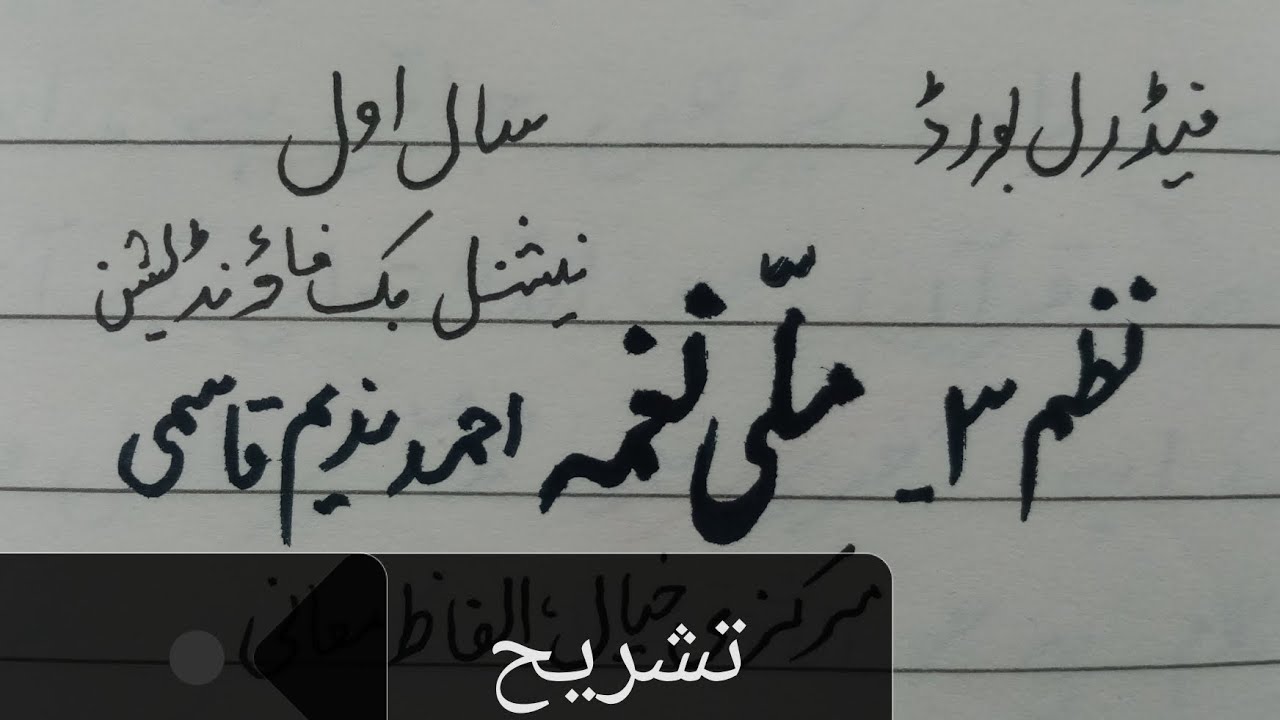 فیڈرل بورڈ سال اول
نیشنل بک فاؤنڈیشن
نظم ۳۔ ملّی نغمہ احمد ندیم قاسمی
مرکزی خیال، الفاظ معانی
تشریح